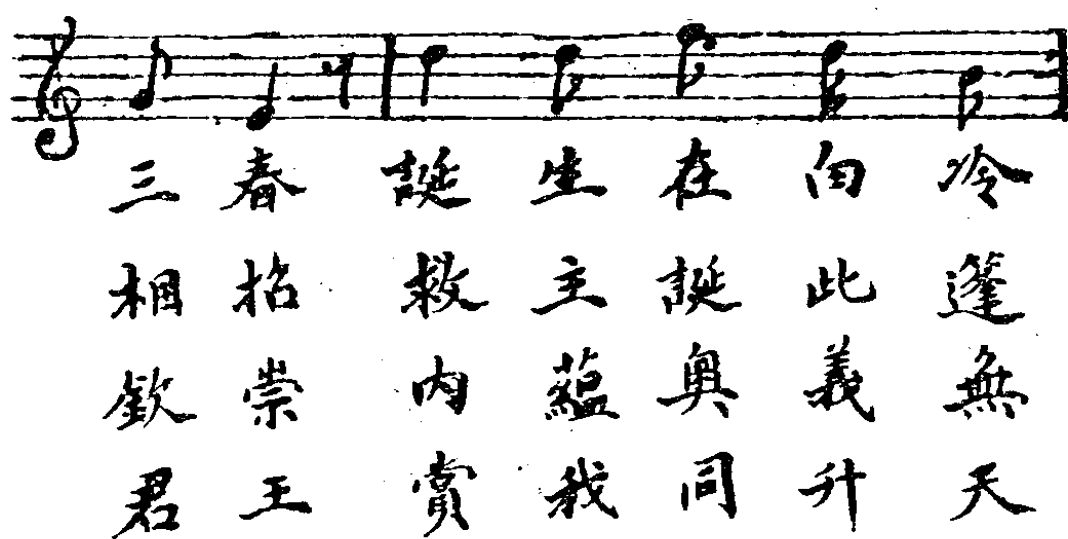 三春誕生在白冷
相招救主誕此蓬
欽崇內蘊奧義無
君王賞我同升天